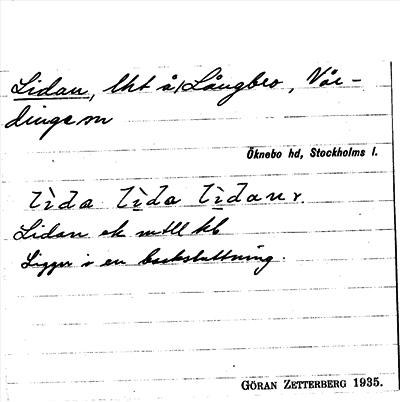 Lidan, lht å Långbro, Vår-
dinge sn
Öknebo hd, Stockholms l.
Lìda Lìda Lìdanr.
Lidan ek mtll kb
Ligger i en backsluttning.
GÖRAN ZETTERBERG 1935.